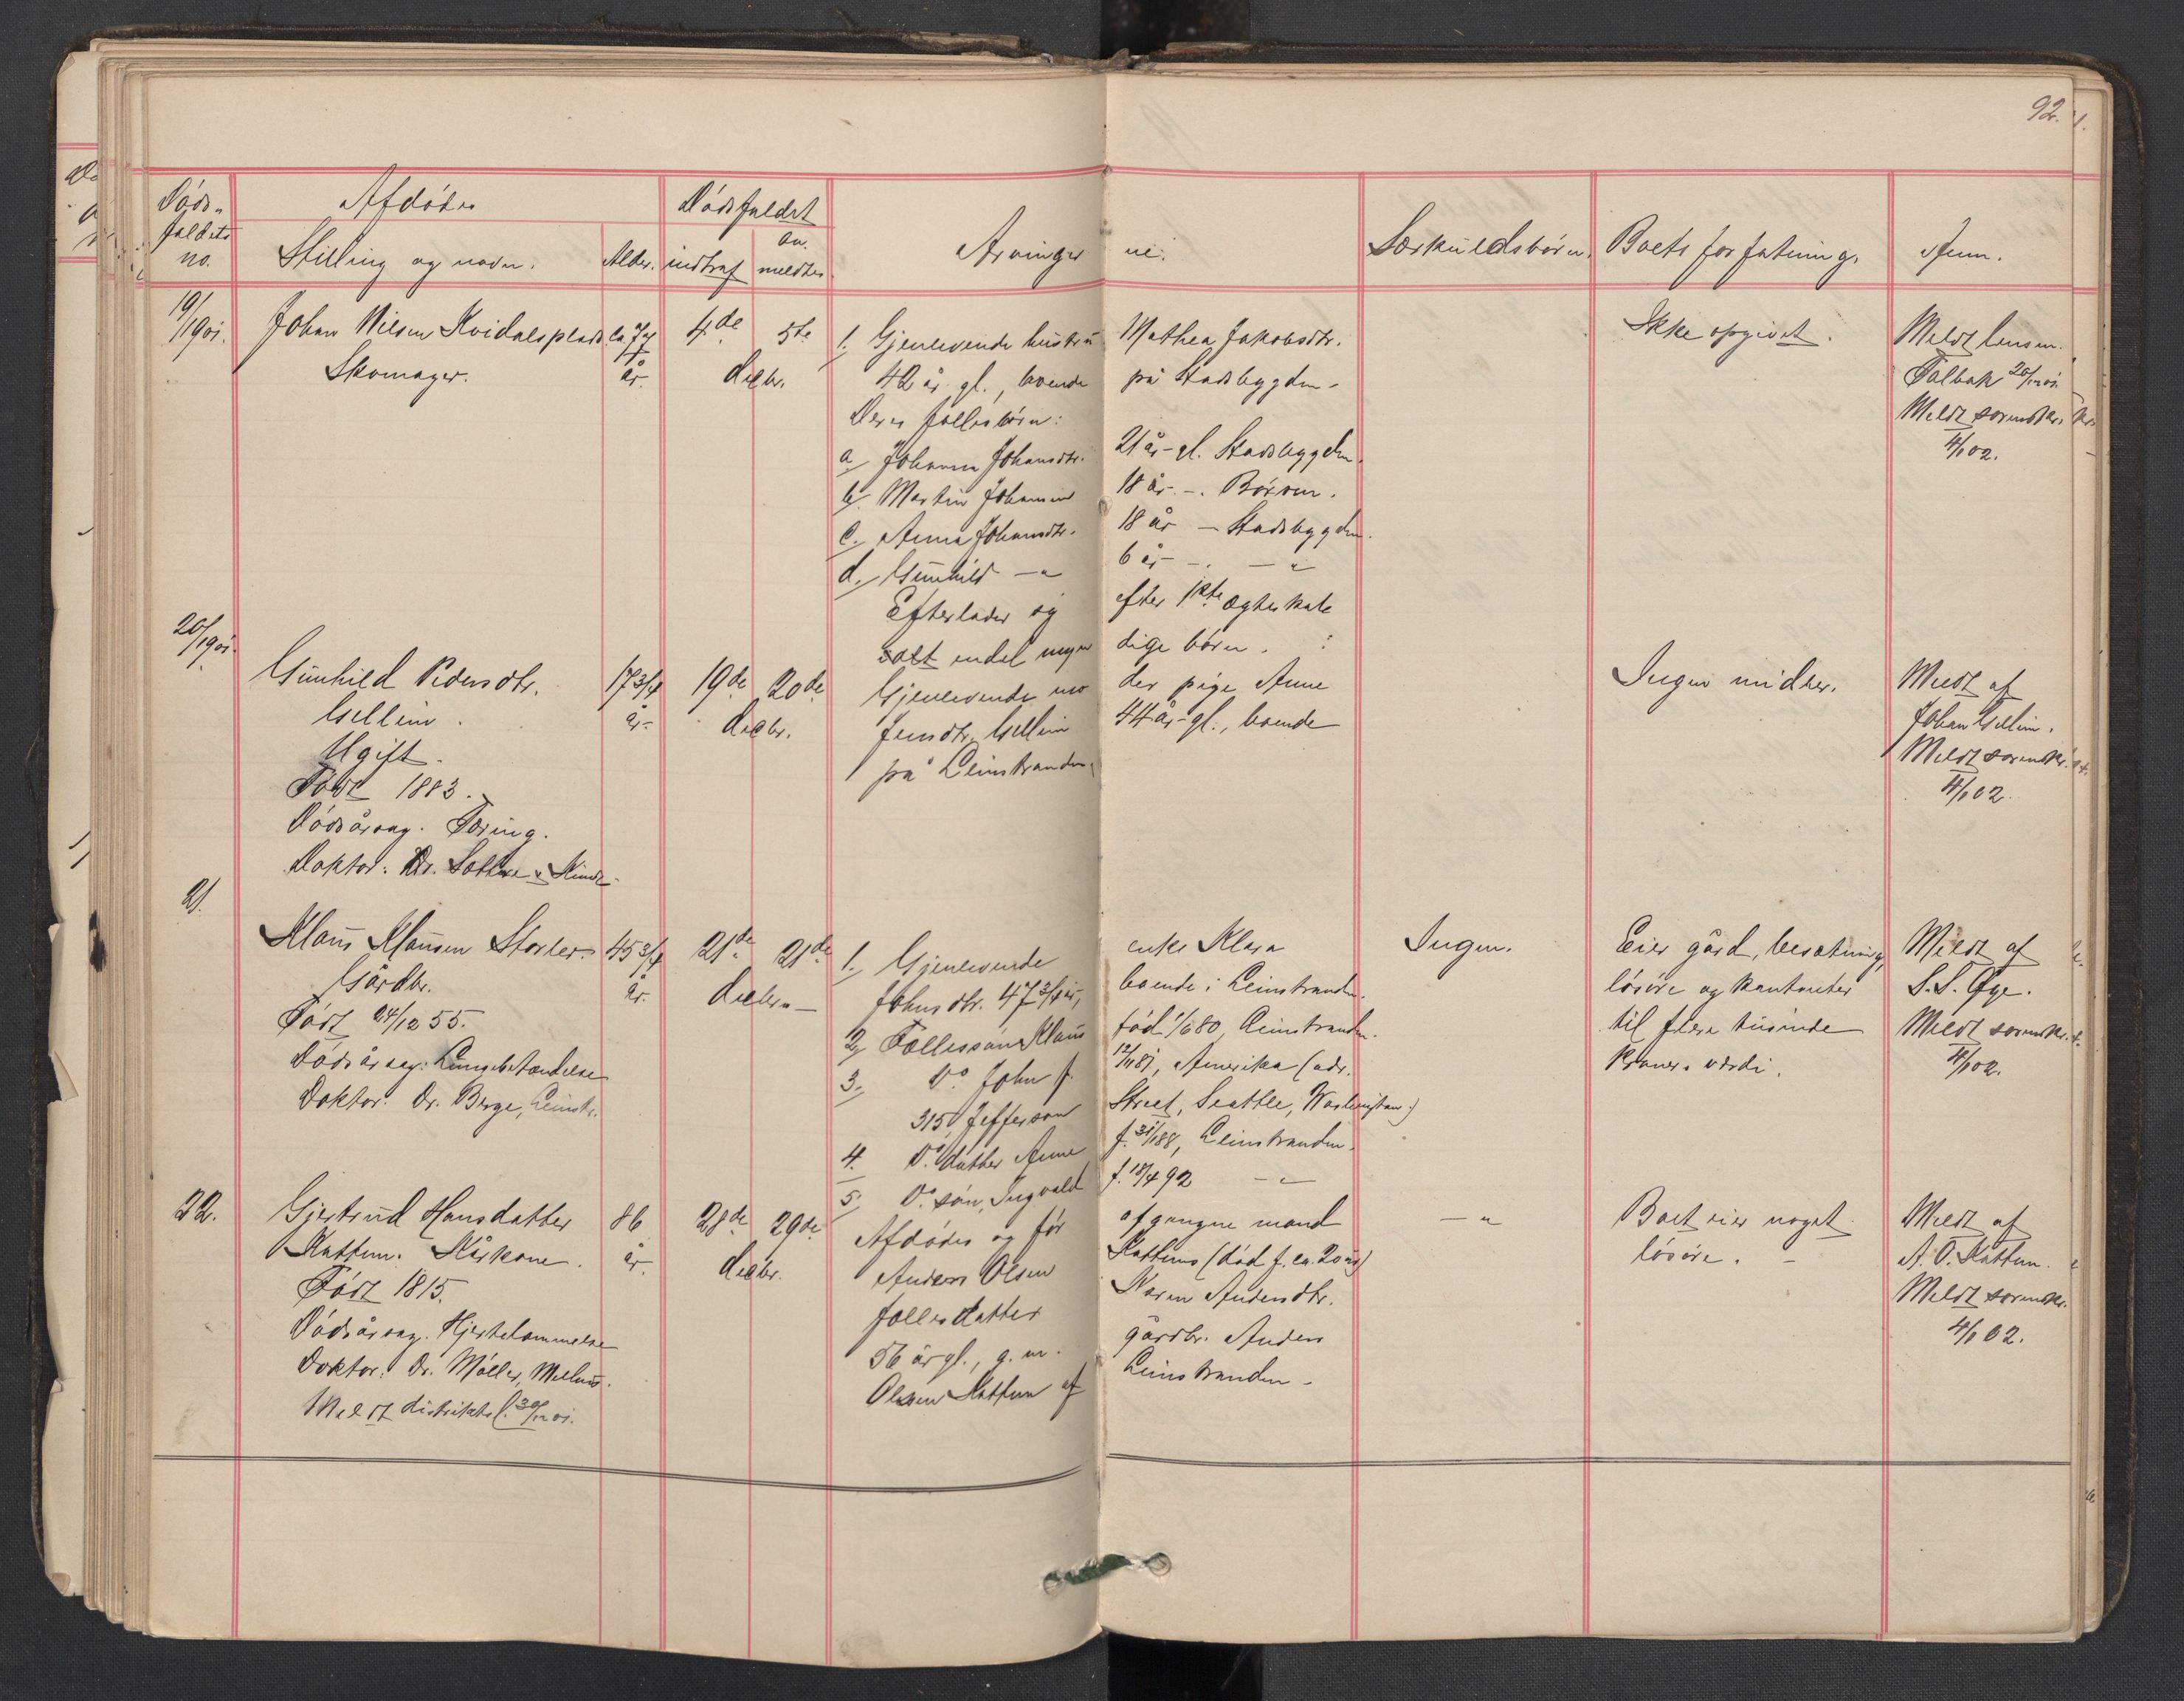 92.
Døds-
faldets
no.
Afdødes
Stilling og navn.
Alder.
Dødsfaldet
indtraf
an-
meldtes
Arvingerne.
Særkuldsbørn.
Boets forfatning.
Anm.
19/1901.
Johan Nilsen Kvidalsplads ca. 74 år. 4de 5te decbr.
Skomager.
1. Gjenlevende hustru Mathea Jakobsdtr.
42 år gl., boende på Stadsbygden.
Deres fællesbørn:
a. Johanna Johansdtr. 21 år gl. Stadsbygden.
b. Martin Johansen 18 år -. Børsen.
c. Anna Johansdtr. 18 år - Stadsbygden.
d. Gunhild -"- 6 år -. -"-
Efterlader og efter 1ste ægteskab
endel myndige børn.
Ikke opgivet.
Meldt lensm.
20/12 01.
Meldt sorenskr.
4/1 02.
20/1901.
Gunhild Pedersdtr. 17 3/4 år. 19de 20de decbr.
Gellein.
Ugift.
Født 1883.
Dødsårsag. Tæring.
Doktor: Dr.
Gjenlevende moder pige Anne
Jensdtr. Gellein 44 år gl., boende
på Leinstranden.
Ingen midler.
Meldt af
Johan Gellein.
Meldt sorenskr.
4/1 02.
21.
Klaus Klausen Storler. 45 3/4 år. 21de 21de decbr.
Gårdbr.
Født 24/12 55.
Dødsårsag: Lungebetændelse
Doktor: Dr. Berge, Leinstr.
1. Gjenlevende enke Klara
Johnsdtr. 47 3/4 år, boende i Leinstranden.
2. Fællessøn Klaus født 1/6 80, Leinstranden.
3. Do John f. 12/11 81, Amerika (adr.
315, Jefferson Street, Seattle, Washington)
4. Do datter Anne f. 31/1 88, Leinstranden.
5. Do søn, Ingvald f. 18/4 92 -"-
Ingen.
Eier gård, besætning,
løsøre og kontanter
til flere tusinde
kroners værdi.
Meldt af
S. S. Øye.
Meldt sorenskr.
4/1 02.
22.
Gjertrud Hansdatter 86 år. 28de 29de decbr.
Kattem. Kårkone.
Født 1815.
Dødsårsag. Hjertelammelse
Doktor: Dr. Møller, Melhus.
Meldt distriktsl. 30/12 01.
Afdødes og førafgangne mand
Anders Olsen Kattems (død f. ca. 20 år)
fællesdatter Maren Andersdtr.
56 år gl., g. m. gårdbr. Anders
Olsen Kattem af Leinstranden.
-"-
Boet eier noget
løsøre.
Meldt af
A. O. Kattem.
Meldt sorenskr.
4/1 02.